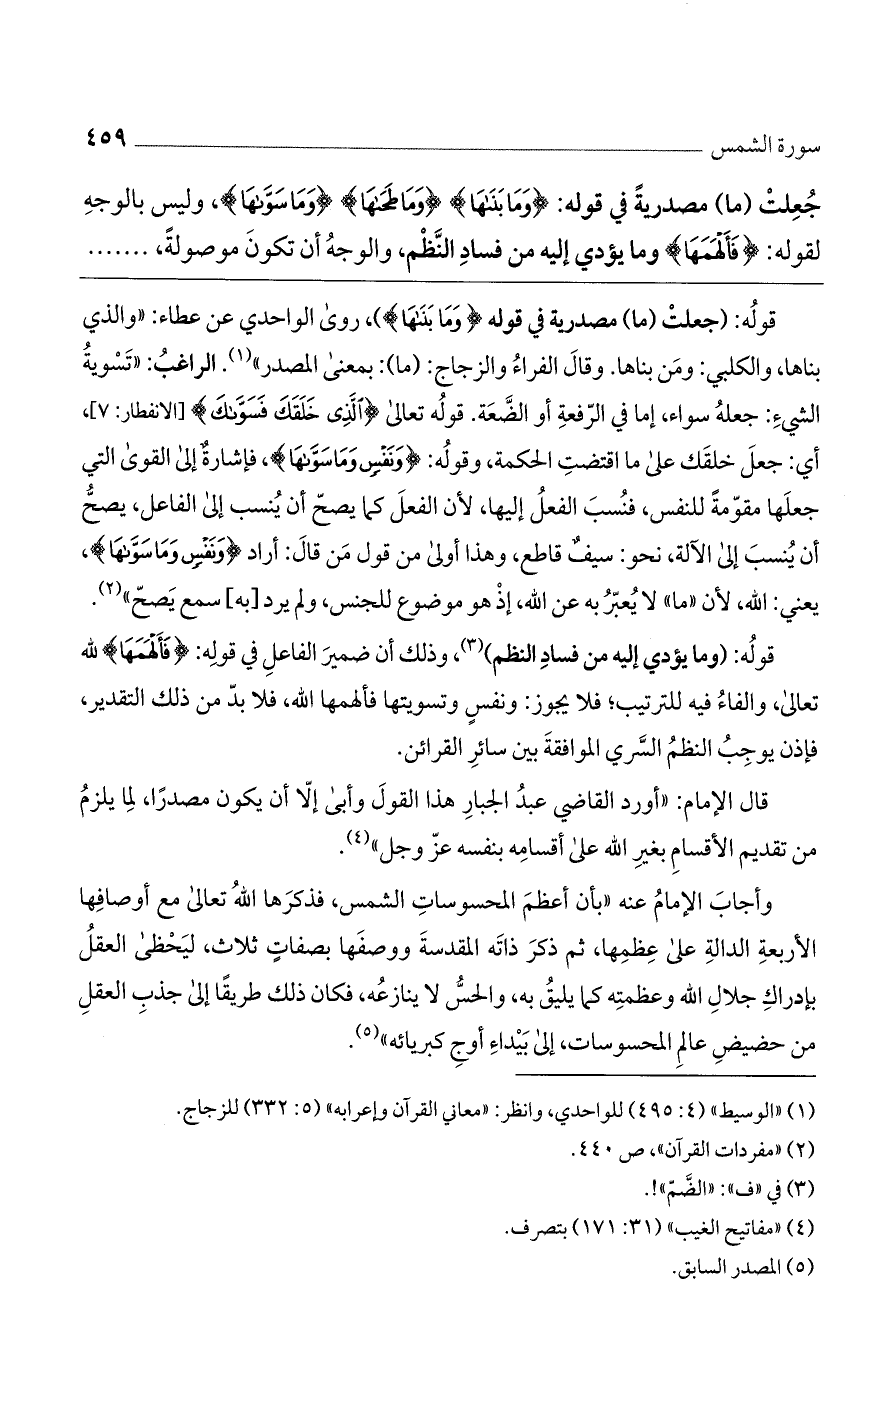 سورة الشمس ٤٥٩
جُعِلتْ (ما) مصدريةً في قوله: ﴿وَمَا بَنَىٰهَا﴾ ﴿وَمَا طَحَىٰهَا﴾ ﴿وَمَا سَوَّىٰهَا﴾، وليس بالوجهِ
لقوله: ﴿فَأَلْهَمَهَا﴾ وما يؤدي إليه من فسادِ النَّظْمِ، والوجهُ أن تكونَ موصولةً، .......
قولُه: (جعلتْ (ما) مصدرية في قوله ﴿وَمَا بَنَىٰهَا﴾)، روىٰ الواحدي عن عطاء: «والذي
بناها، والكلبي: ومَن بناها. وقالَ الفراءُ والزجاج: (ما): بمعنىٰ المصدر»(١). الراغبُ: «تَسْويةُ
الشيءِ: جعلهُ سواء، إما في الرّفعةِ أو الضَّعَة. قولُه تعالىٰ ﴿ٱلَّذِى خَلَقَكَ فَسَوَّىٰكَ﴾ [الانفطار: ٧]،
أي: جعلَ خلقَك علىٰ ما اقتضتِ الحكمة، وقولُه: ﴿وَنَفْسٍ وَمَا سَوَّىٰهَا﴾، فإشارةٌ إلىٰ القوىٰ التي
جعلَها مقوّمةً للنفس، فنُسبَ الفعلُ إليها، لأن الفعلَ كما يصحّ أن يُنسب إلىٰ الفاعل، يصحُّ
أن يُنسبَ إلىٰ الآلة، نحو: سيفٌ قاطع، وهذا أولىٰ من قول مَن قالَ: أراد ﴿وَنَفْسٍ وَمَا سَوَّىٰهَا﴾،
يعني: الله، لأن «ما» لا يُعبّرُ به عن الله، إذْ هو موضوع للجنس، ولم يرد [به] سمع يَصحّ»(٢).
قولُه: (وما يؤدي إليه من فسادِ النظم)(٣)، وذلك أن ضميرَ الفاعلِ في قولِه: ﴿فَأَلْهَمَهَا﴾ لله
تعالىٰ، والفاءُ فيه للترتيب؛ فلا يجوز: ونفسٍ وتسويتها فألهمها الله، فلا بدّ من ذلك التقدير،
فإذن يوجِبُ النظمُ السَّري الموافقةَ بين سائرِ القرائن.
قال الإمام: «أورد القاضي عبدُ الجبارِ هذا القولَ وأبىٰ إلّا أن يكون مصدرًا، لِما يلزمُ
من تقديم الأقسامِ بغيرِ الله علىٰ أقسامِه بنفسه عزّ وجل»(٤).
وأجابَ الإمامُ عنه «بأن أعظمَ المحسوساتِ الشمس، فذكرَها اللهُ تعالىٰ مع أوصافِها
الأربعةِ الدالةِ علىٰ عِظمِها، ثم ذكرَ ذاتَه المقدسةَ ووصفَها بصفاتٍ ثلاث، ليَحْظىٰ العقلُ
بإدراكِ جلالِ الله وعظمتِه كما يليقُ به، والحسُّ لا ينازعُه، فكان ذلك طريقًا إلىٰ جذبِ العقلِ
من حضيضِ عالمِ المحسوسات، إلىٰ بَيْداءِ أوجِ كبريائه»(٥).
(١) «الوسيط» (٤: ٤٩٥) للواحدي، وانظر: «معاني القرآن وإعرابه» (٥: ٣٣٢) للزجاج.
(٢) «مفردات القرآن»، ص ٤٤٠.
(٣) في «ف»: «الضَّمّ»!.
(٤) «مفاتيح الغيب» (٣١: ١٧١) بتصرف.
(٥) المصدر السابق.